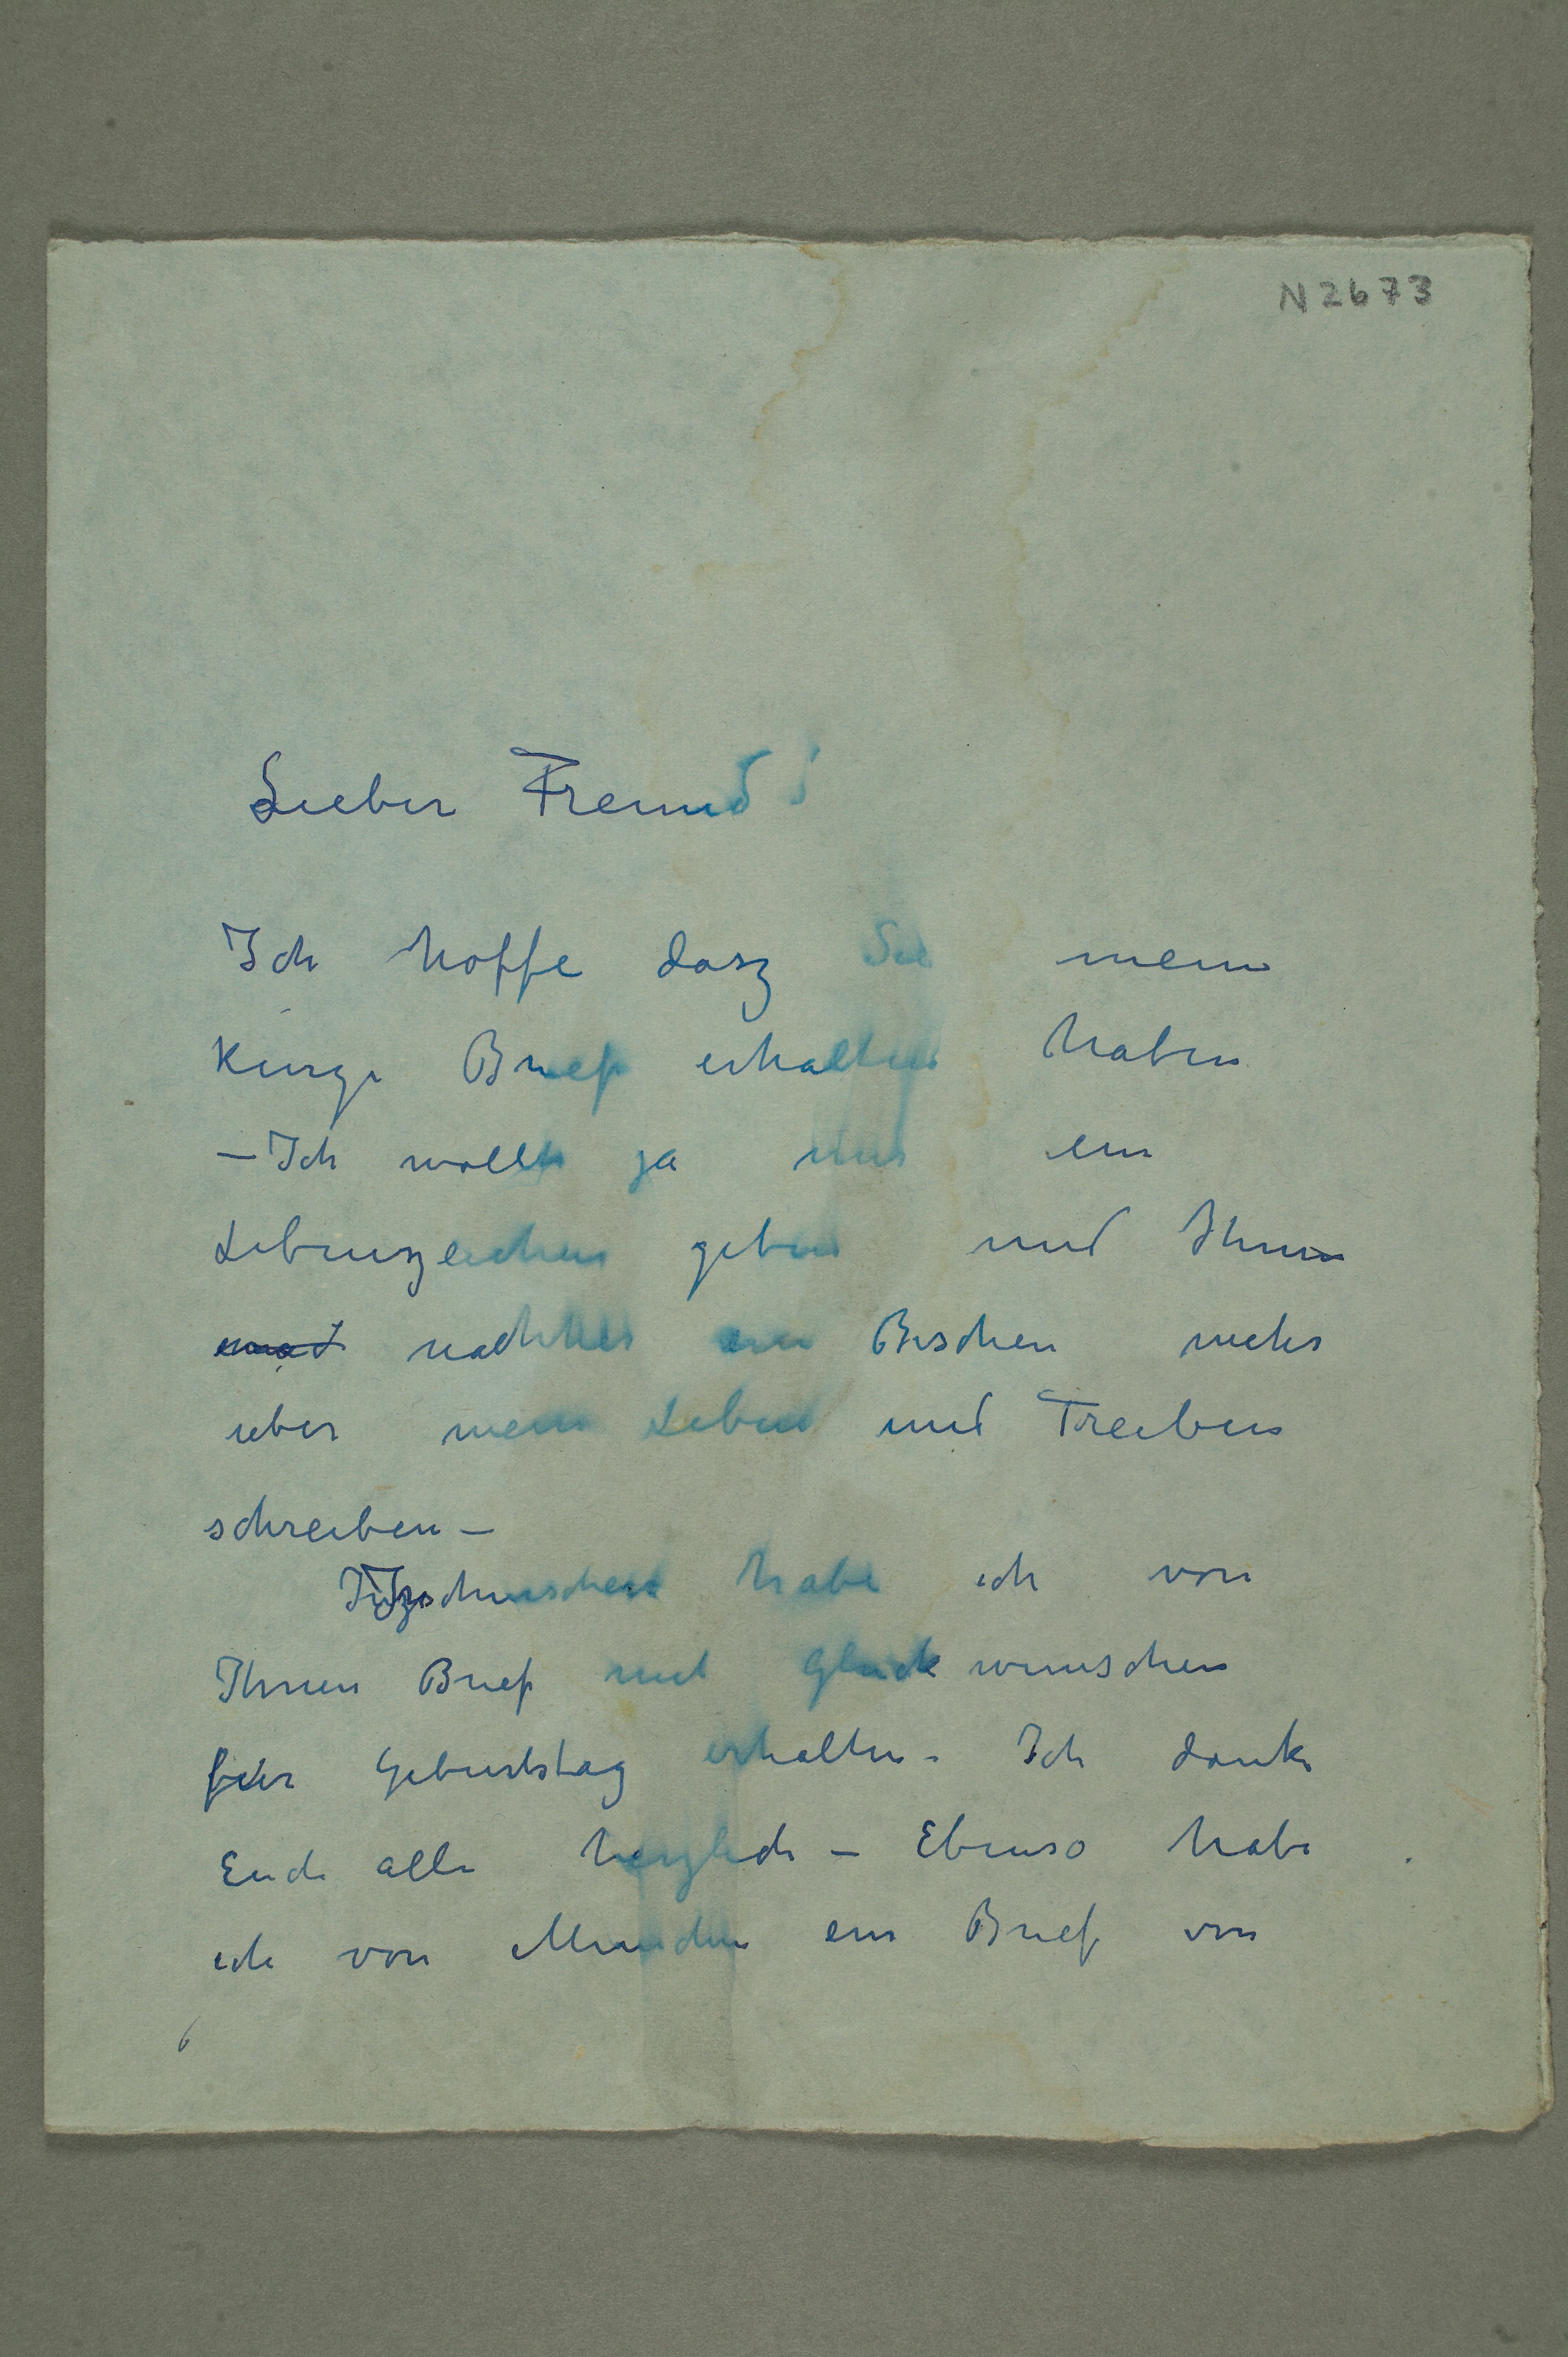 N 2673
Lieber Freund!
Ich hoffe dasz Sie mein
kurze Brief erhalten haben
– Ich wollte ja nur ein
Lebenszeichen geben und Ihnen
nachher ein Bischen mehr
ueber mein Leben und Treiben
schreiben –
habe ich von
Ihnen Brief mit Gluckwunschen
für Geburtstag erhalten. Ich danke
Euch alle herzlich – Ebenso habe
ich von Munchen ein Brief von